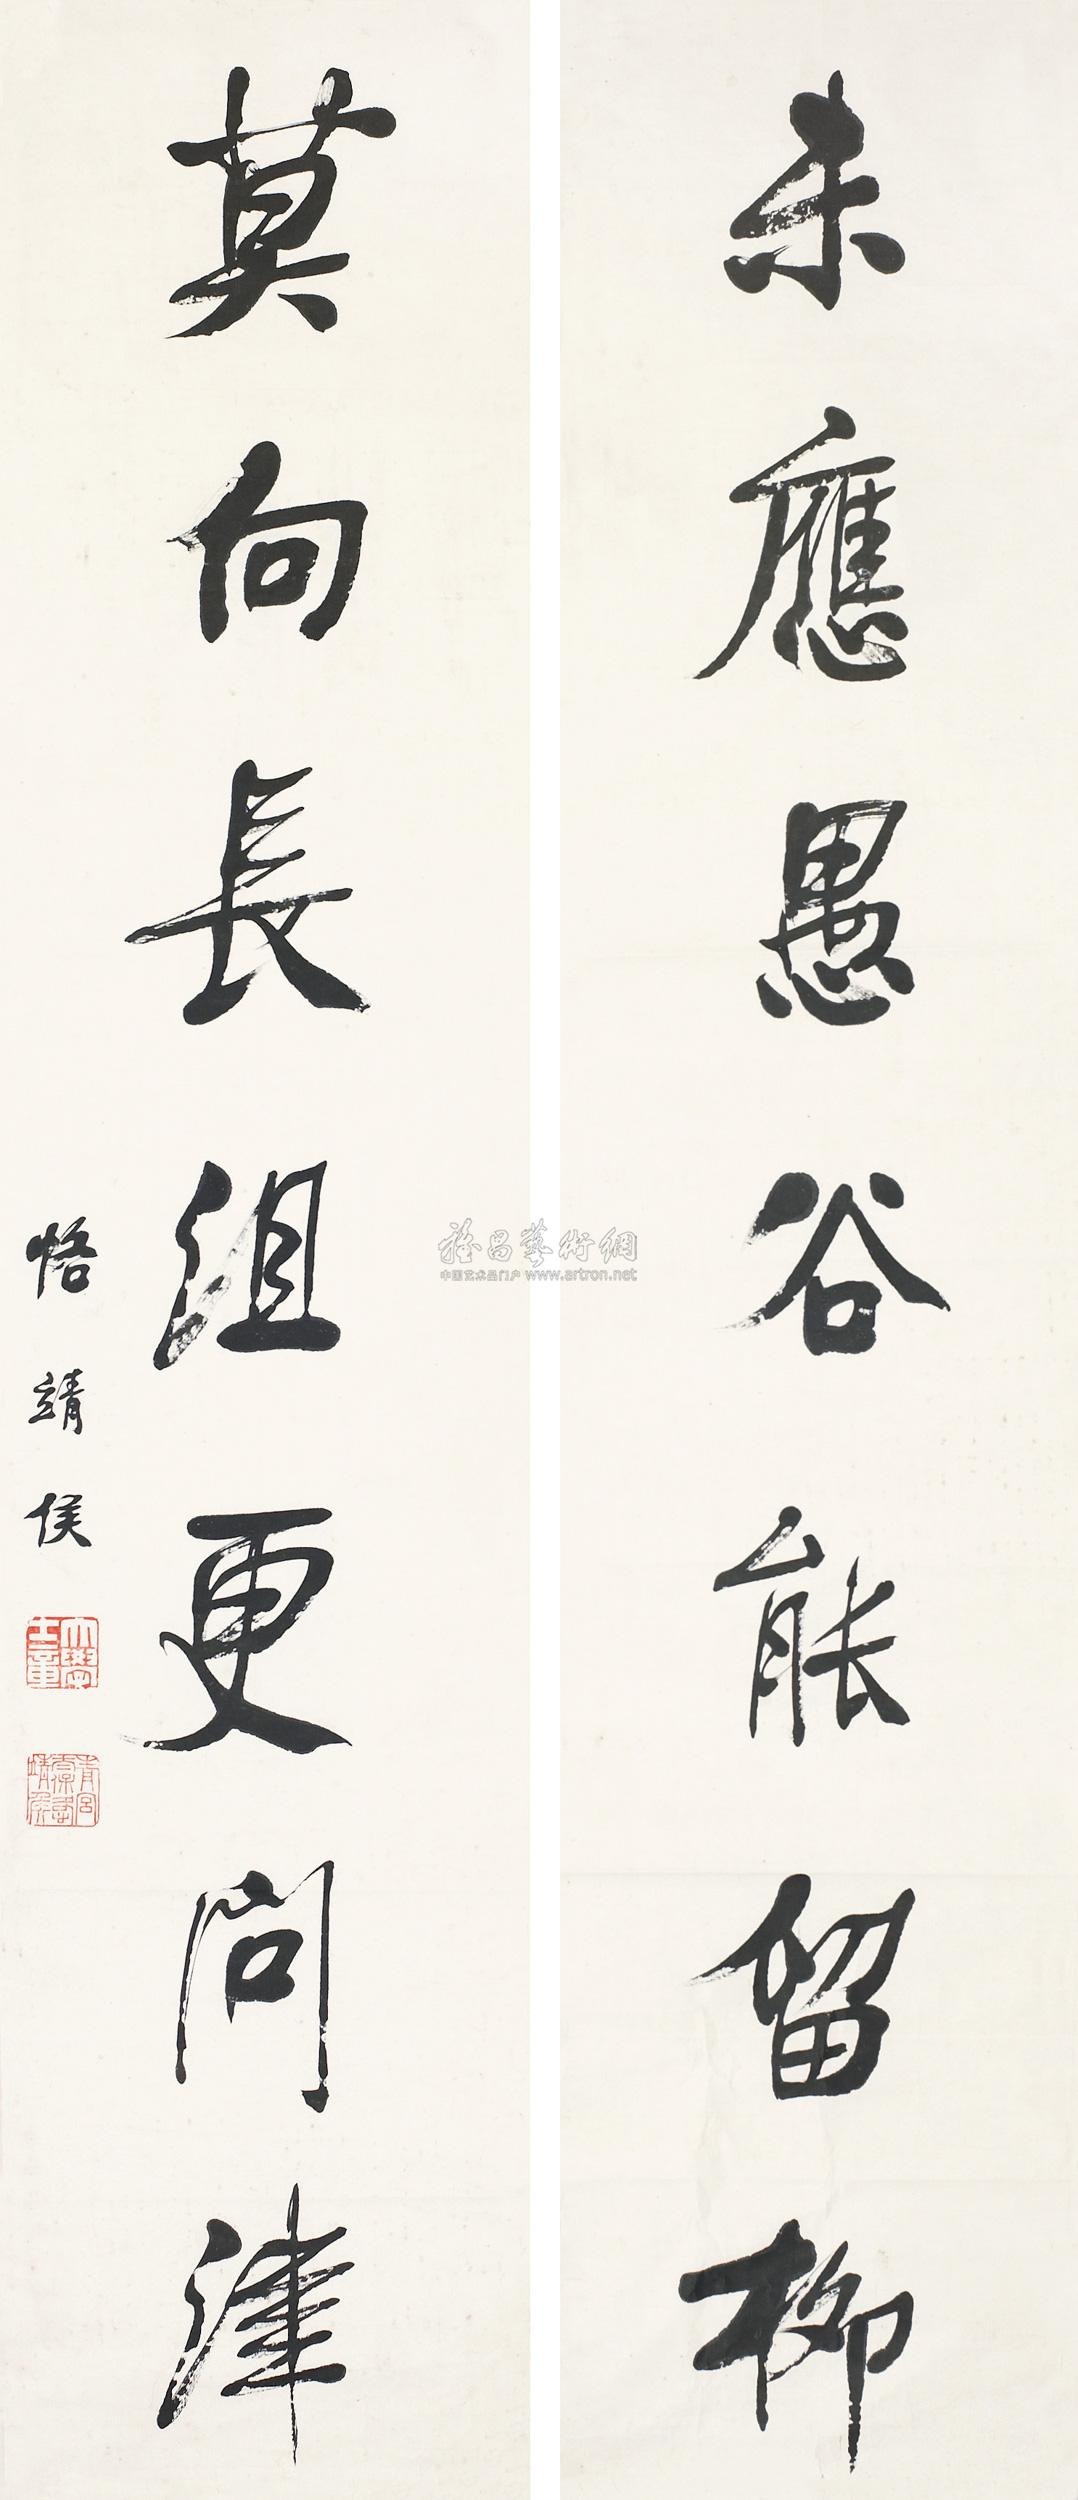 未應愚谷能留柳
莫向長沮更問津
悟靖侯
雅昌藝術網
中国艺术品门户 www.artron.net